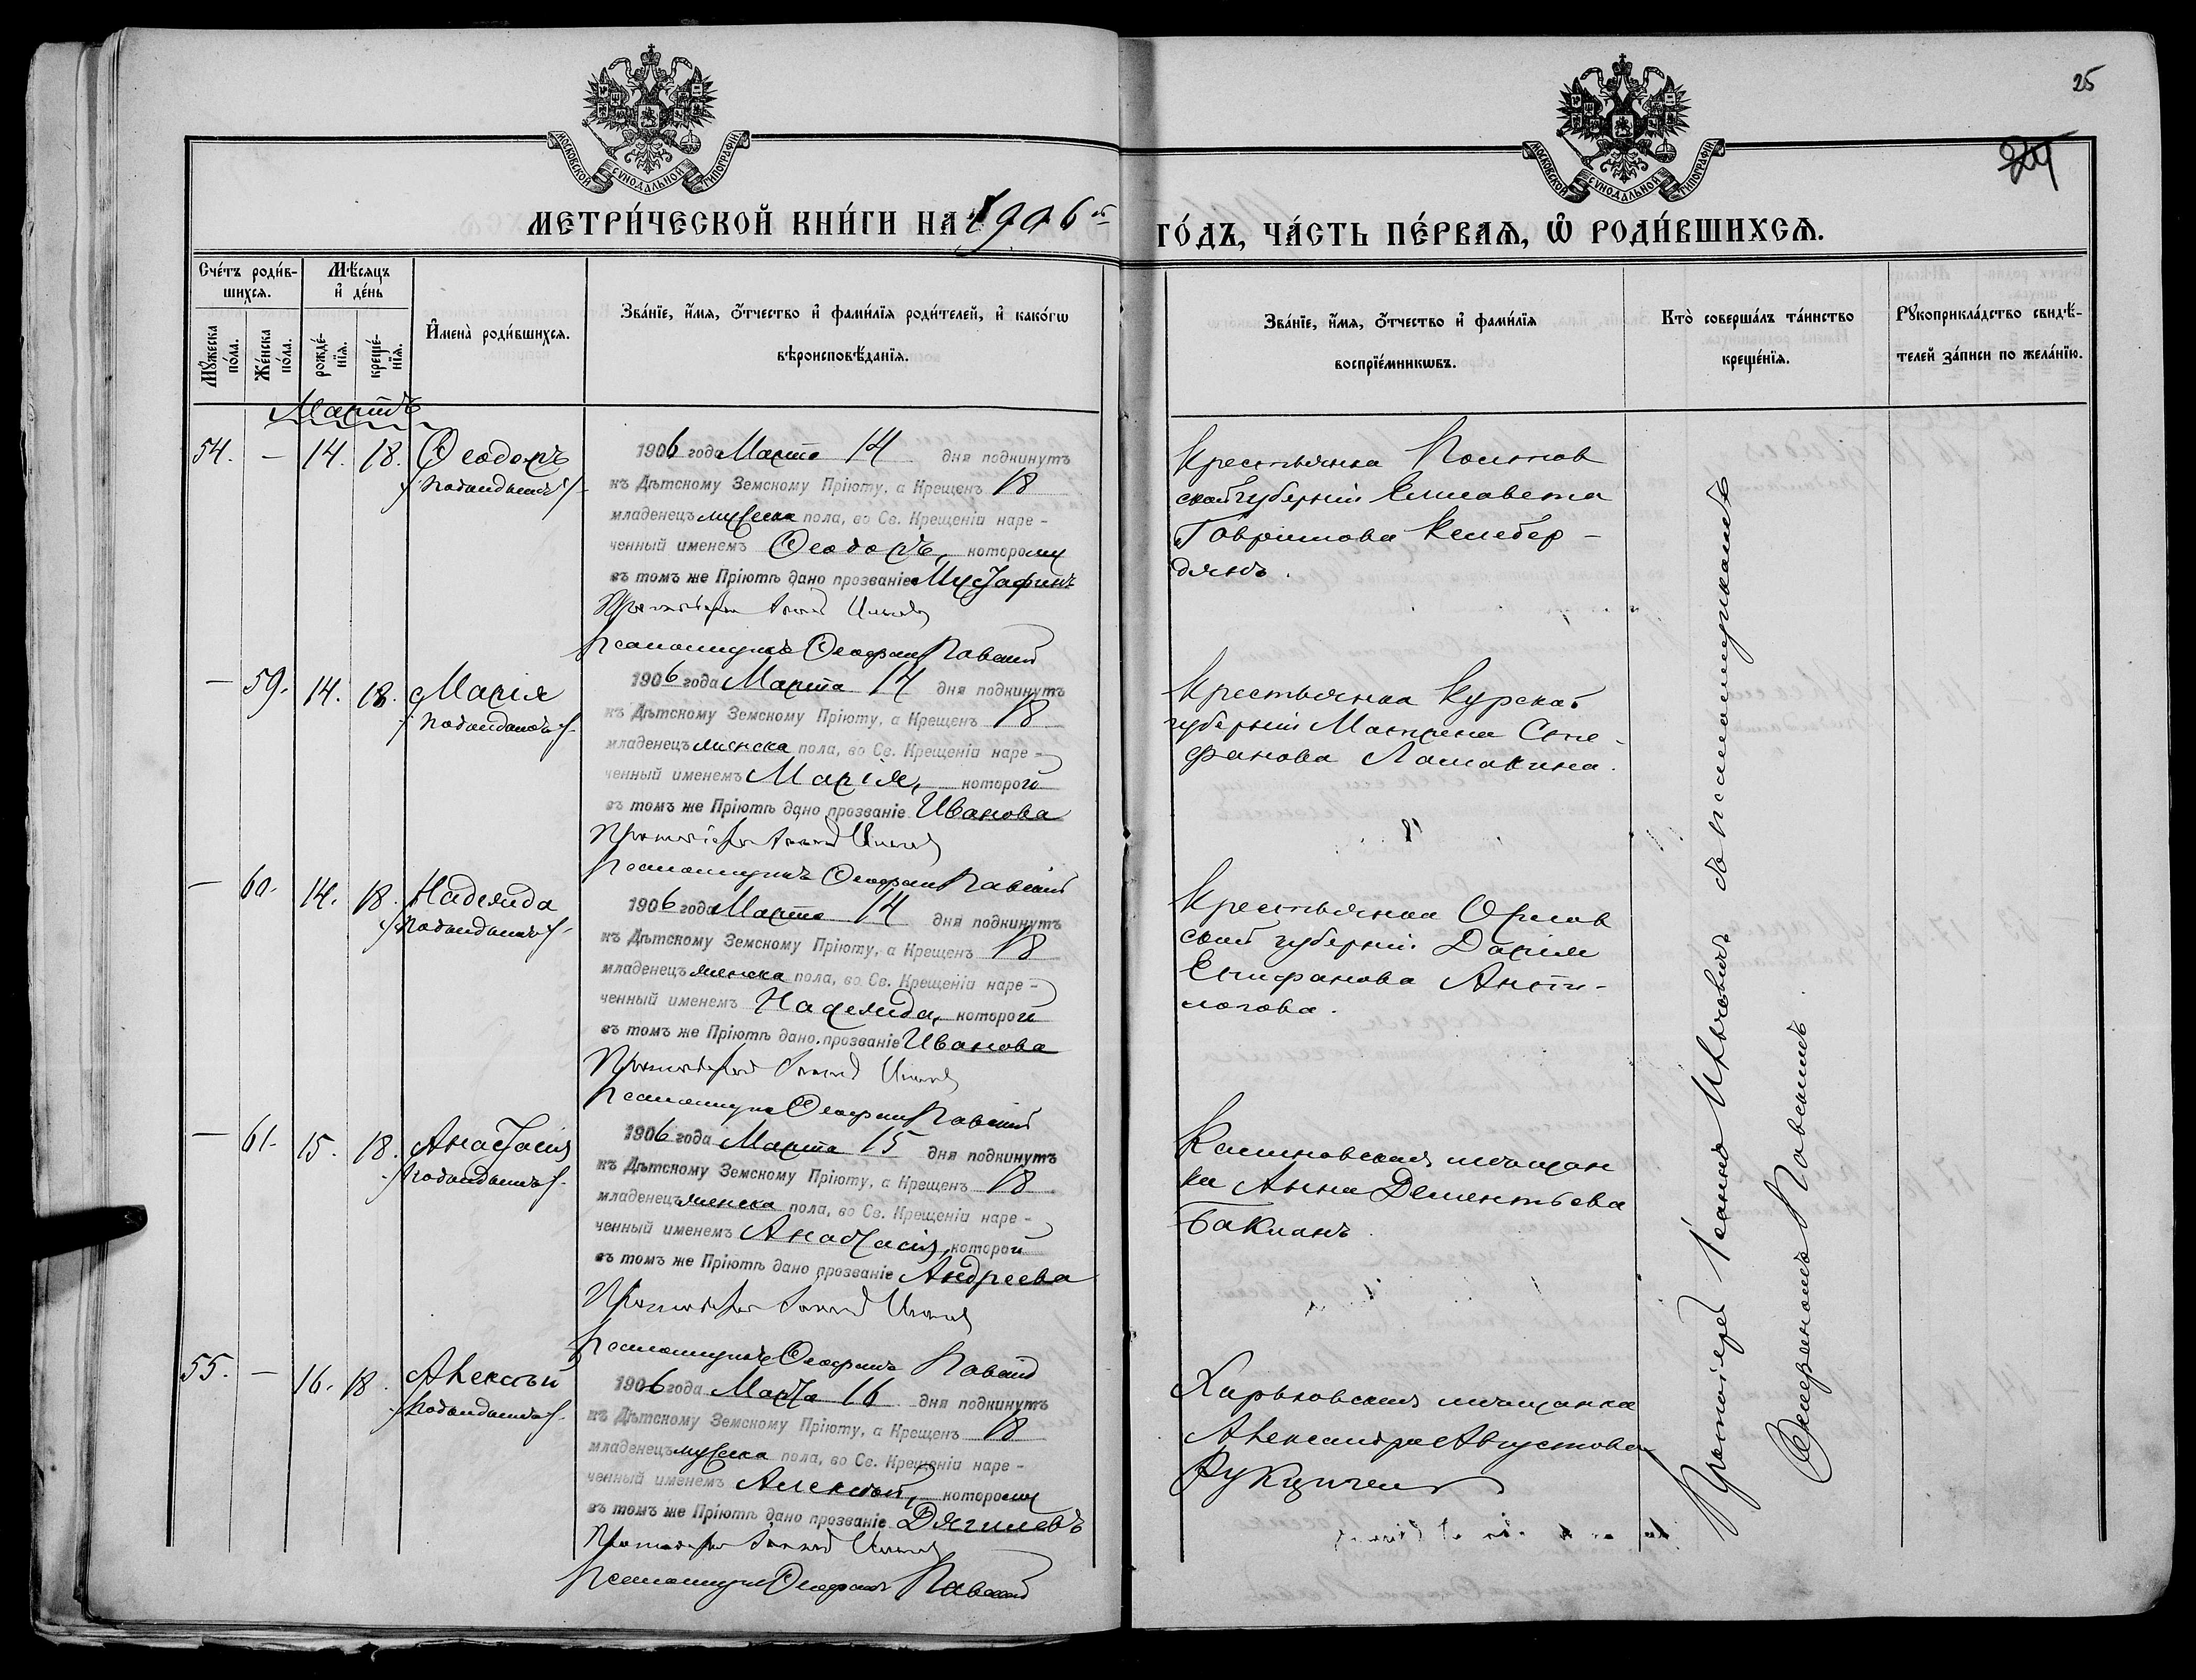 25
МОСКОВСКОЙ СѴНОДАЛЬНОЙ ТИПОГРАФІИ
МОСКОВСКОЙ СѴНОДАЛЬНОЙ ТИПОГРАФІИ
МЕТРИ́ЧЕСКОЙ КНИ́ГИ НА 1906 й
ГО́ДЪ, ЧА́СТЬ ПЕ́РВАѦ, Ѽ РОДИ́ВШИХСѦ.
Сче́тъ роди́в-
шихсѧ.
Мꙋ́жеска по́ла.
Же́нска по́ла.
Мѣ́сѧцъ и҆ де́нь
рожде́-нїѧ.
креще́-нїѧ.
И҆мена̀ роди́вшихсѧ.
Зва́нїе, и҆́мѧ, ѻ҆́тчество и҆ фами́лїѧ роди́телей, и҆ како́гѡ
вѣроисповѣ́данїѧ.
Зва́нїе, и҆́мѧ, ѻ҆́тчество и҆ фами́лїѧ
воспрїе́мникѡвъ.
Кто̀ соверша́лъ та́инство
креще́нїѧ.
Рꙋкоприкла́дство свидѣ́-
телей за́писи по жела́нїю.
Мартъ
54. — 14. 18. Ѳеодоръ
/подкидышъ/
1906 года Марта 14 дня подкинутъ
къ Дѣтскому Земскому Пріюту, а Крещенъ 18
младенецъ мужеска пола, во Св. Крещеніи наре-
ченный именемъ Ѳеодоръ, которому
въ томъ же Пріютѣ дано прозваніе Мустафинъ
Протоіерей Іоаннъ
Псаломщикъ Ѳеофанъ Павскій
Крестьянка Полтав
ской губерніи Елисавета
Гаврилова Келебер-
дянъ.
— 59. 14. 18. Марія
/подкидышъ/
1906 года Марта 14 дня подкинутъ
къ Дѣтскому Земскому Пріюту, а Крещенъ 18
младенецъ женска пола, во Св. Крещеніи наре-
ченный именемъ Марія, которой
въ томъ же Пріютѣ дано прозваніе Иванова
Протоіерей Іоаннъ
Псаломщикъ Ѳеофанъ Павскій
Крестьянка Курской
губерніи Матрена Сте-
фанова Ломакина.
— 60. 14. 18. Надежда
/подкидышъ/
1906 года Марта 14 дня подкинутъ
къ Дѣтскому Земскому Пріюту, а Крещенъ 18
младенецъ женска пола, во Св. Крещеніи наре-
ченный именемъ Надежда, которой
въ томъ же Пріютѣ дано прозваніе Иванова
Протоіерей Іоаннъ
Псаломщикъ Ѳеофанъ Павскій
Крестьянка Орлов
ской губерніи Дарія
Епифанова Анти-
логова.
— 61. 15. 18. Анастасія
/подкидышъ/
1906 года Марта 15 дня подкинутъ
къ Дѣтскому Земскому Пріюту, а Крещенъ 18
младенецъ женска пола, во Св. Крещеніи наре-
ченный именемъ Анастасія, которой
въ томъ же Пріютѣ дано прозваніе Андреева
Протоіерей Іоаннъ
Псаломщикъ Ѳеофанъ Павскій
мѣщан
ка Анна Дементьева
Бакланъ.
55. — 16. 18. Алексѣй
/подкидышъ/
1906 года Марта 16 дня подкинутъ
къ Дѣтскому Земскому Пріюту, а Крещенъ 18
младенецъ мужеска пола, во Св. Крещеніи наре-
ченный именемъ Алексѣй, которому
въ томъ же Пріютѣ дано прозваніе Дягилевъ
Протоіерей Іоаннъ
Псаломщикъ Ѳеофанъ Павскій
Харьковская мѣщанка
Александра Августова
Протоіерей Іоаннъ съ псаломщикомъ
Ѳеофаномъ Павскимъ.